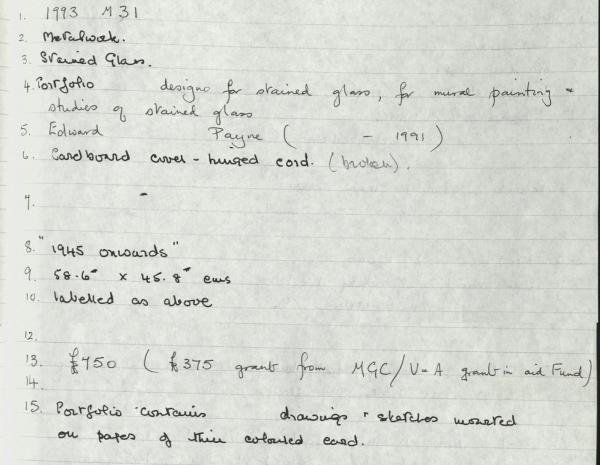 1. 1993 M31
2. Metalwork.
3. Stained Glass.
4. Portfolio designs for stained glass, for mural painting &
studies of stained glass
5. Edward Payne ( - 1991)
6. Cardboard cover - hinged cord. (broken).
7. -
8. "1945 onwards"
9. 58.6 x 45.8 cms
10. labelled as above
12.
13. £750 (£375 grant from MGC/V&A grant in aid Fund)
14.
15. Portfolio contains drawings & sketches mounted
on pages of thin coloured card.